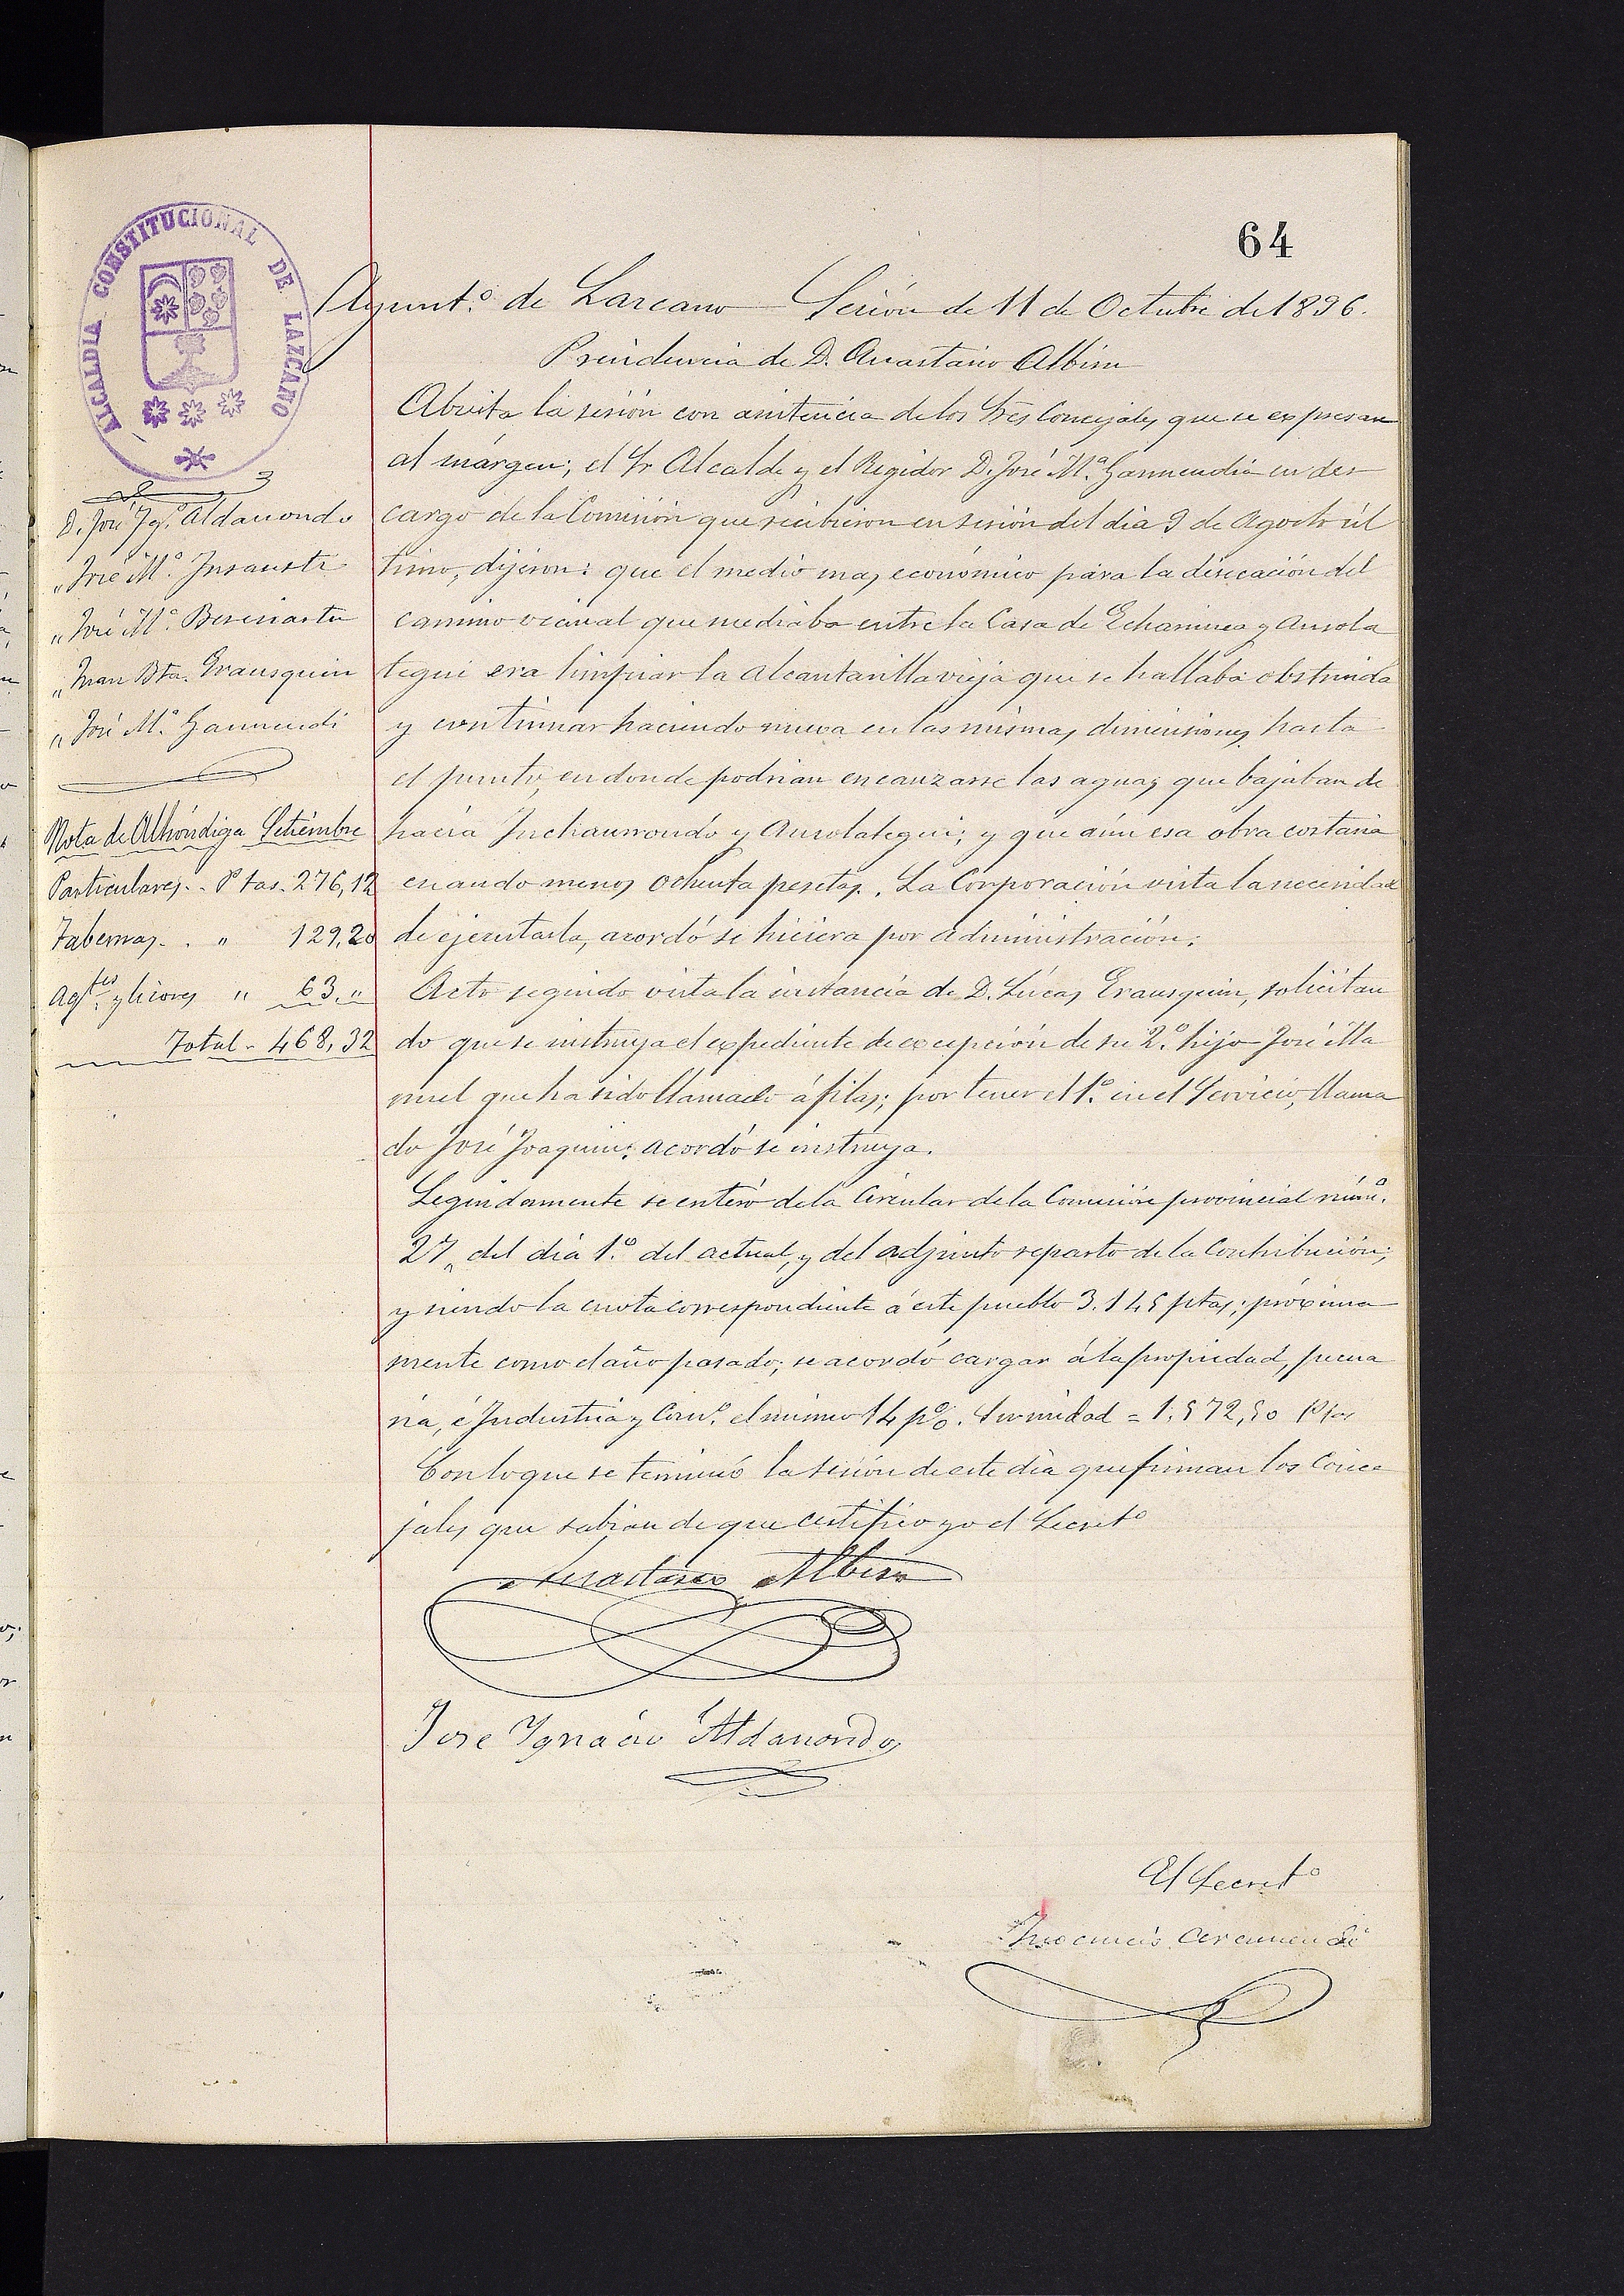 64
ALCALDIA CONSTITUCIONAL DE LAZCANO
Ayunt.º de Lazcano Sesión de 11 de Octubre de 1896.
Presidencia de D. Anastasio Albisu
D. José Ygº. Aldanondo
„ José Mª. Insausti
„ José Mª. Berasiartu
„ Juan Bta. Erausquin
„ José Mª. Garmendi
Nota de Alhóndiga Setiembre
Particulares.. Ptas. 276,12
Tabernas.. „ 129,20
Agtes. y licores „ 63,„
Total - 468,32
Abierta la sesión con asistencia de los Sres Concejales que se expresan
al márgen; el Sr Alcalde y el Regidor D. José Mª. Garmendia en des
cargo de la Comisión que recibieron en sesión del dia 9 de Agosto úl
timo, dijeron: que el medio mas económico para la disecación del
camino vecinal que mediaba entre la Casa de Echaminea y Ausola
tegui era limpiar la alcantarilla vieja que se hallaba obstruida
y continuar haciendo nueva en las mismas dimensiones hasta
el punto, en donde podrian encauzarse las aguas que bajaban de
hacia Inchaurrondo y Ausolategui; y que aún esa obra costaria
cuando menos ochenta pesetas. La Corporación vista la necesidad
de ejecutarla, acordó se hiciera por administración.
Acto seguido vista la instancia de D. Lúcas Erausquin, solicitan
do que se instruya el expediente de excepción de su 2.º hijo José Ma
nuel que ha sido llamado á filas; por tener el 1.º en el Servicio, llama
do José Joaquin; acordó se instruya.
Seguidamente se enteró de la Circular de la Comisión provincial númº.
27, del dia 1.º del actual, y del adjunto reparto de la Contribución;
y siendo la cuota correspondiente á este pueblo 3.145 ptas; próxima
mente como el año pasado; se acordó cargar á la propiedad, pecua
ria, é Industria y Comº. el mismo 14 p%. Sumidad = 1.572,50 Ptas
Con lo que se terminó la sesión de este dia que firman los Conce
jales que sabian de que certifico yo el Secretº
Anastasio Albisu
Jose Ygnacio Aldanondo
El Secretº
Inocencio Aramendi